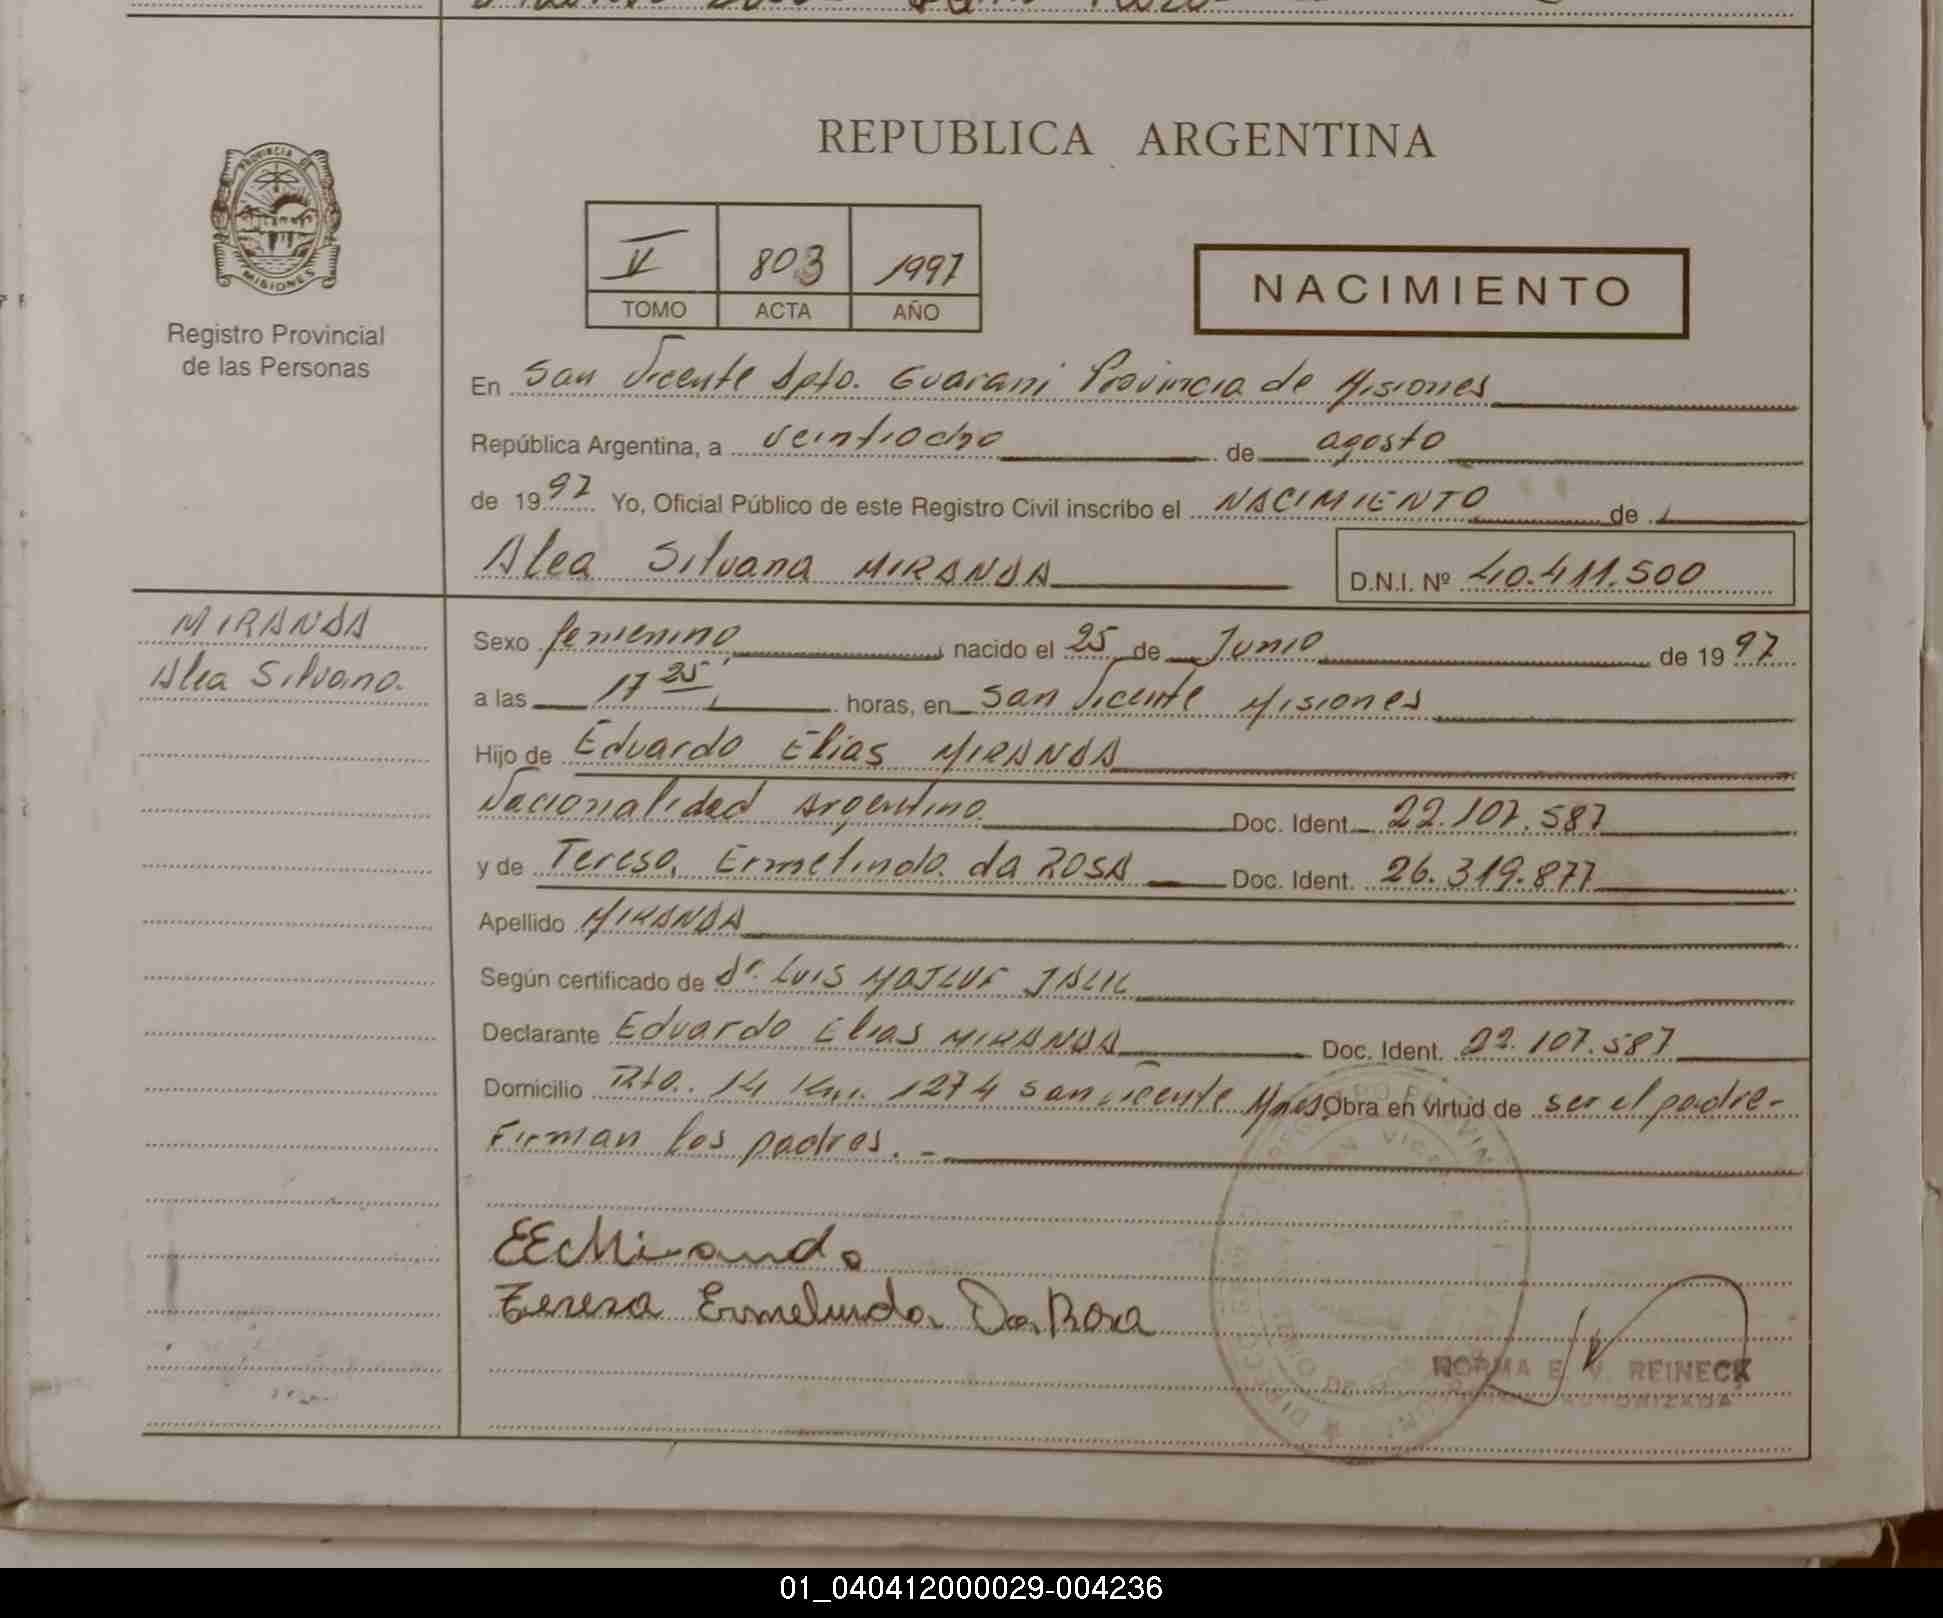 REPUBLICA ARGENTINA
PROVINCIA DE
MISIONES
Registro Provincial
de las Personas
V 803 1997
TOMO ACTA AÑO
NACIMIENTO
En San Vicente Dpto. Guarani Provincia de Misiones
República Argentina, a veintiocho de agosto
de 1997 Yo, Oficial Público de este Registro Civil inscribo el NACIMIENTO de
Alea Silvana MIRANDA D.N.I. Nº 40.411.500
MIRANDA
Alea Silvana.
Sexo femenino nacido el 25 de Junio de 1997
a las 17 25 horas, en San Vicente Misiones
Hijo de Eduardo Elias MIRANDA
Nacionalidad Argentino Doc. Ident. 22.107.587
y de Teresa Ermelinda da ROSA Doc. Ident. 26.319.877
Apellido MIRANDA
Según certificado de Dr. LUIS MAJLUF JALIL
Declarante Eduardo Elias MIRANDA Doc. Ident. 22.107.587
Domicilio Rta. 14 Km. 1274 San Vicente Mnes Obra en virtud de ser el padre-
Firman los padres.-
EEMiranda
Teresa Ermelinda Da Rosa
NORMA E. V. REINECK
AUTORIZADA
01_040412000029-004236